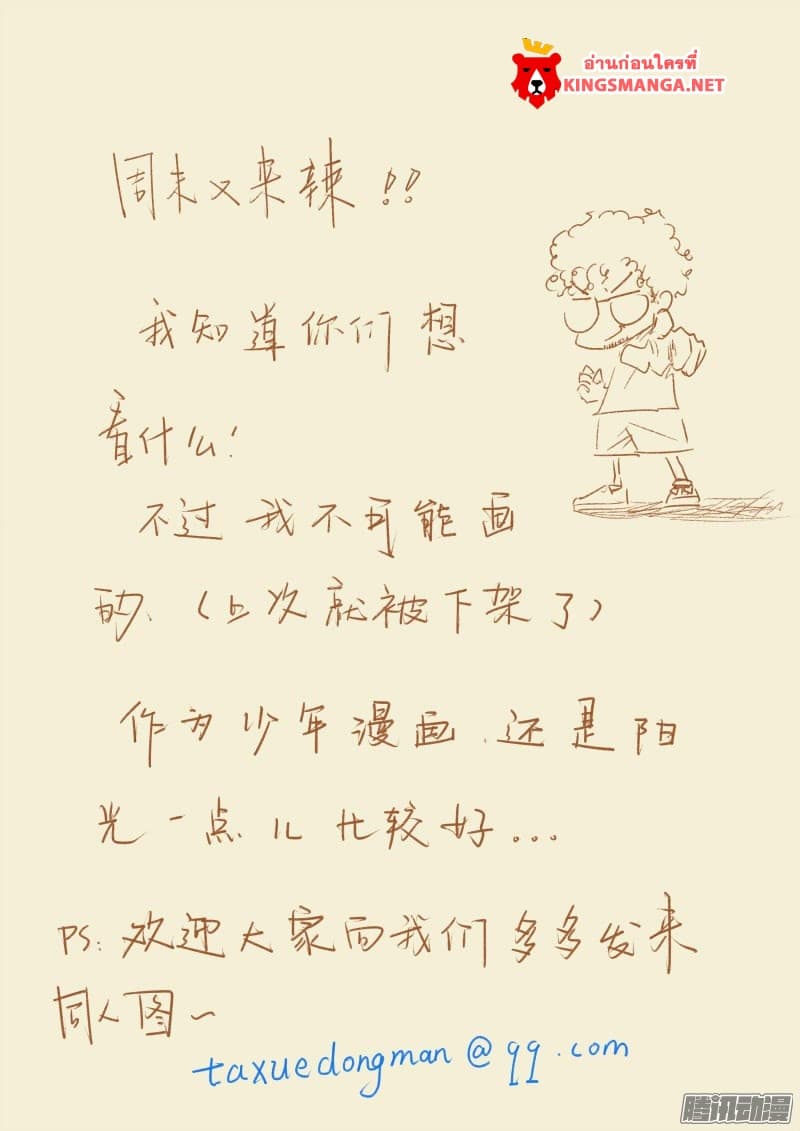 อ่านก่อนใครที่
KINGSMANGA.NET
周末又来辣!!
我知道你们想
看什么!
不过我不可能画
的、(上次就被下架了)
作为少年漫画、还是阳
光一点儿比较好...
PS:欢迎大家向我们多多发来
同人图~
taxuedongman@qq.com
腾讯动漫